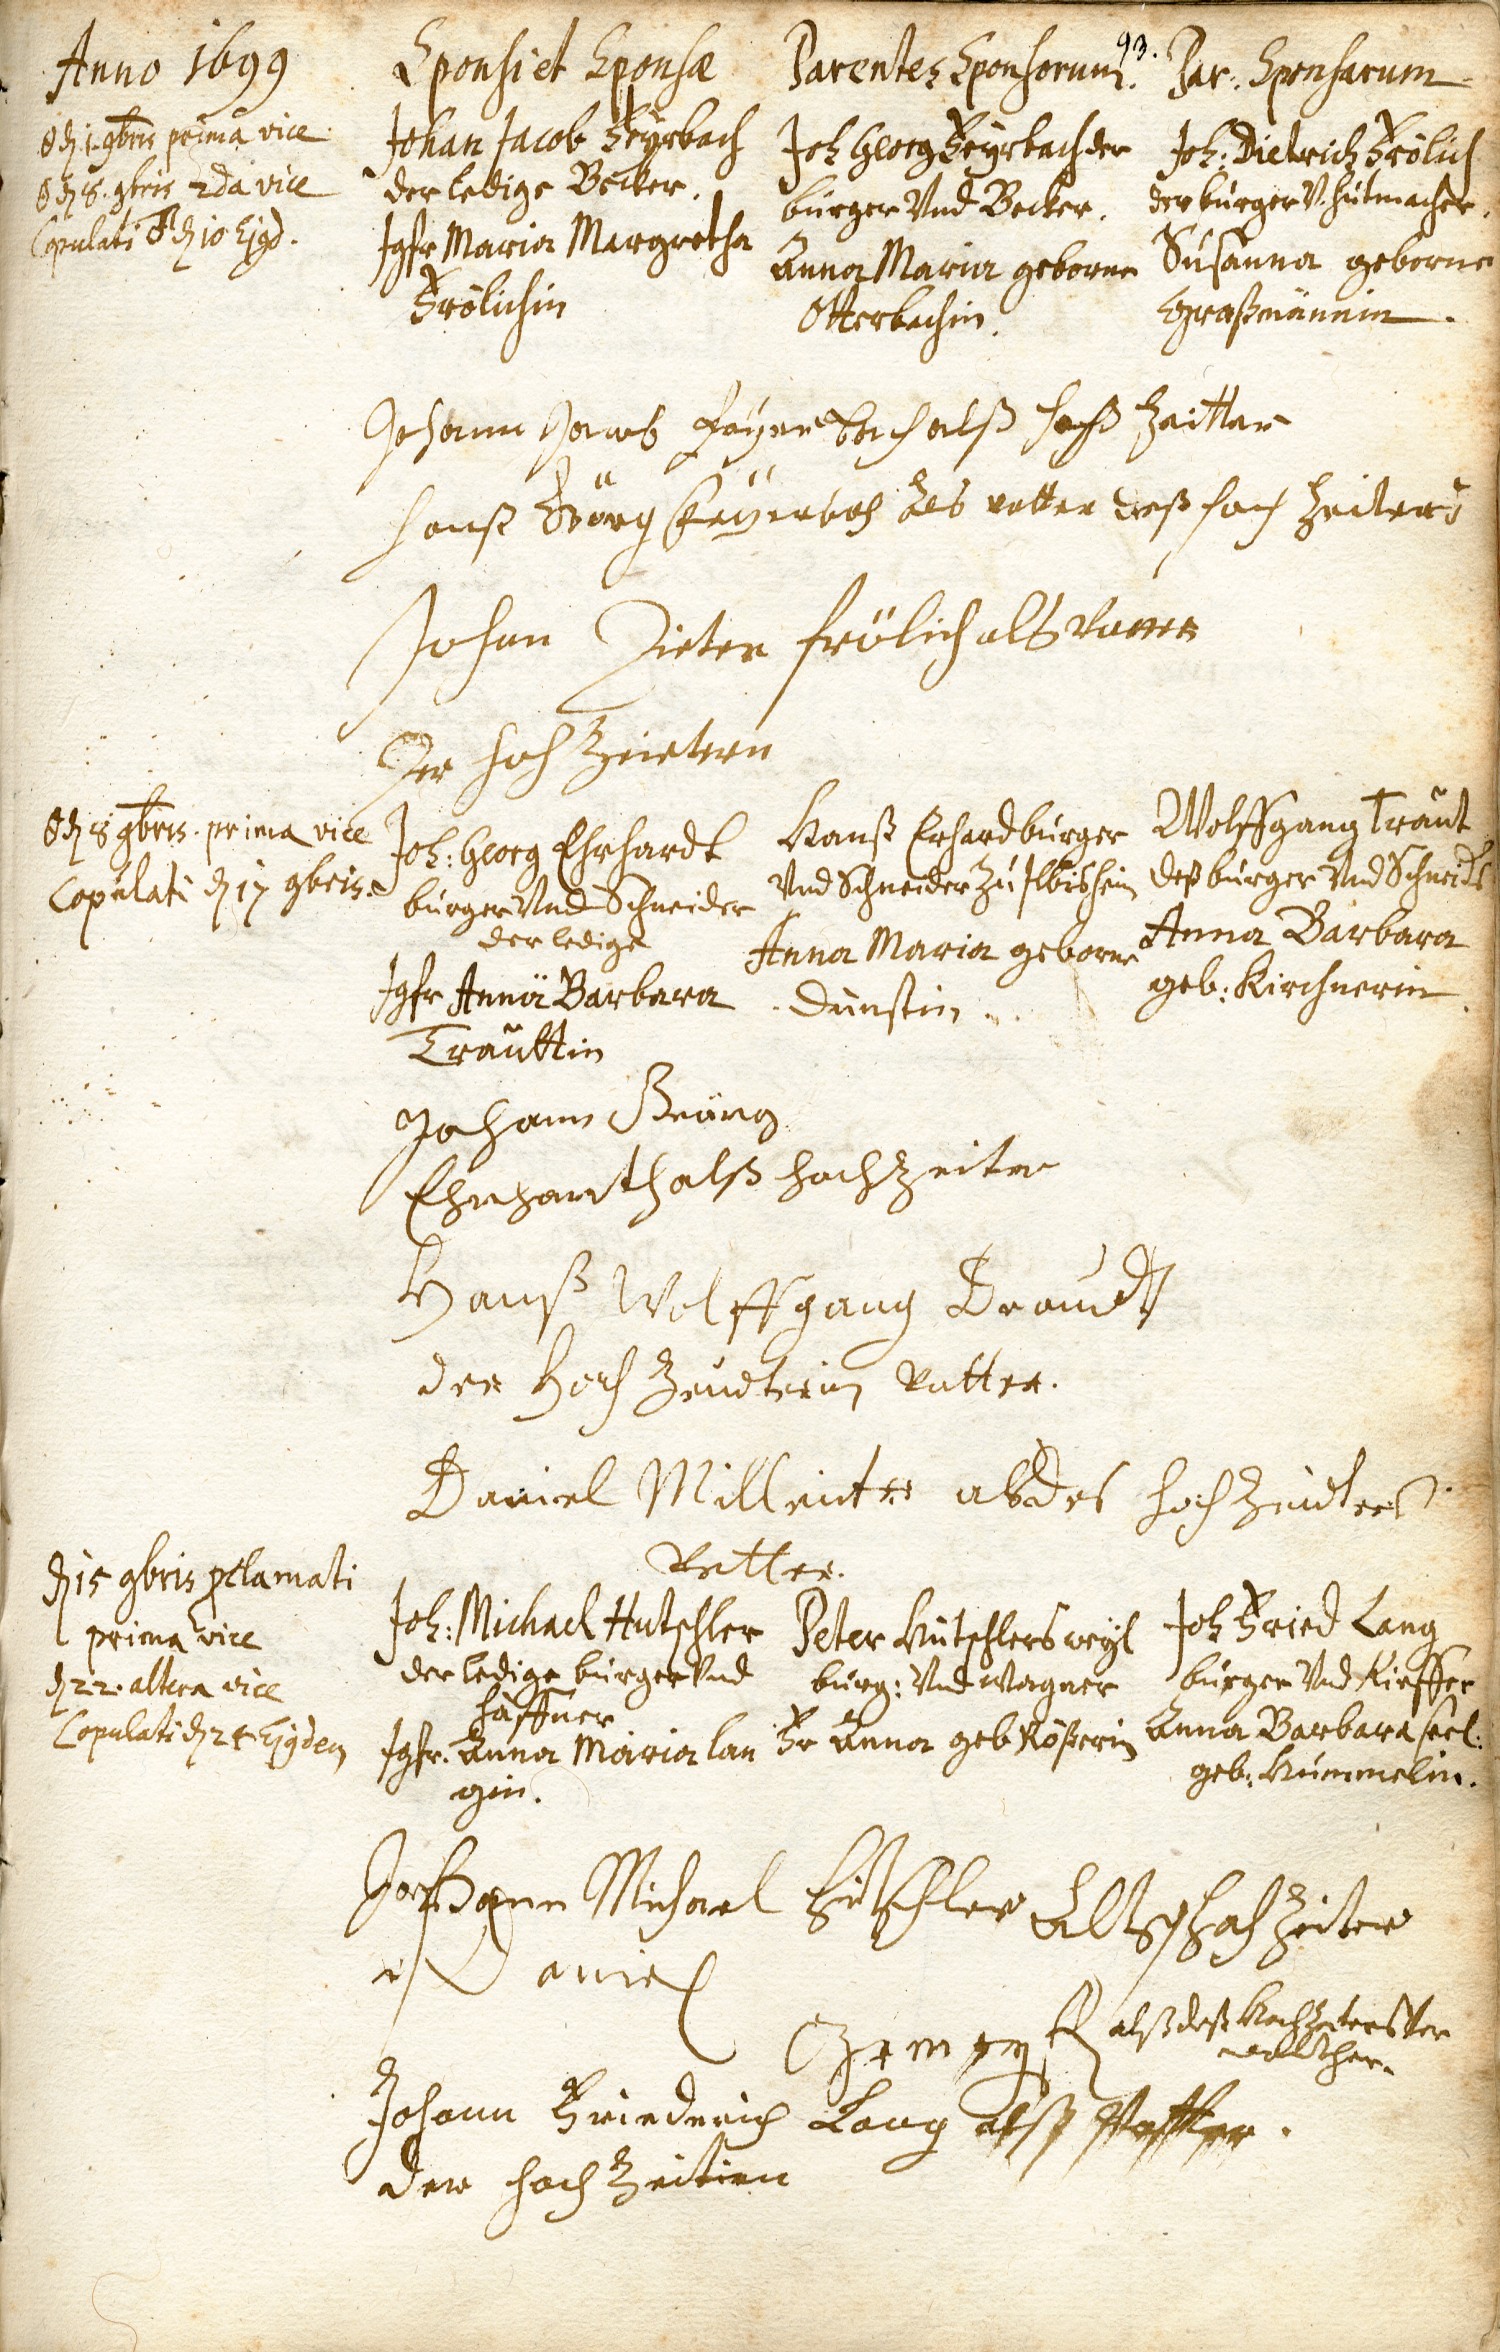 93.
Anno 1699
Sponsi et Sponsæ
Parentes Sponsorum.
Par: Sponsarum
d. 1. 9bris prima vice
d. 8. 9bris 2da vice
Copulati d. 10 Ejsd.
Johan Jacob Feyrbach
der ledige Becker.
Jgfr Maria Margretha
Frölichin
Joh Georg Feyrbach der
burger Vnd Becker.
Anna Maria geborne
Otterbachin.
Joh: Dietrich Frölich
der burger V. hutmacher.
Susanna geborne
Graßmännin.
Johann Jacob Feyerbach alß hochzeitter
Hanß Görg Feÿerbach als vatter deß hochzeiters
Johan Dieter frölich als Vatter
Der hochzeitern
d. 8 9bris. prima vice
Copulati d. 17 9bris.
Joh: Georg Ehrhardt
burger Vnd Schneider
der ledige
Jgfr Anna Barbara
Trauttin
Hanß Erhard burger
Vnd Schneider Zu Ilbisheim
Anna Maria geborne
Dunstin.
Wolffgang Traut
deß burger Vnd Schneids
Anna Barbara
geb: Kirchnerin
Johann Geörg
Ehrharth alß hochzeiter
Hanß Wolffgang Draudt
der Hochzeudterin Vatter.
Daniel als des hochzeidters
Vetter.
d. 15 9bris pclamati
prima vice
d. 22. altera vice
Copulati d. 24 Ejsdem
Joh: Michael Hutschler
der ledige burger Vnd
haffner
Jgfr. Anna Maria lan
gin.
Peter Hutschlers weyl
burg: Vnd wagner
Fr Anna geb Rößerin
Joh Fried Lang
burger Vnd Kieffer
Anna Barbara seel:
geb: Hummelin.
Johann Michael Hutschler Alts Hochzeiter
Daniel
alß deß Hochzeiters
Johann Friederich Lang alß Vatter.
der hochzeitirn